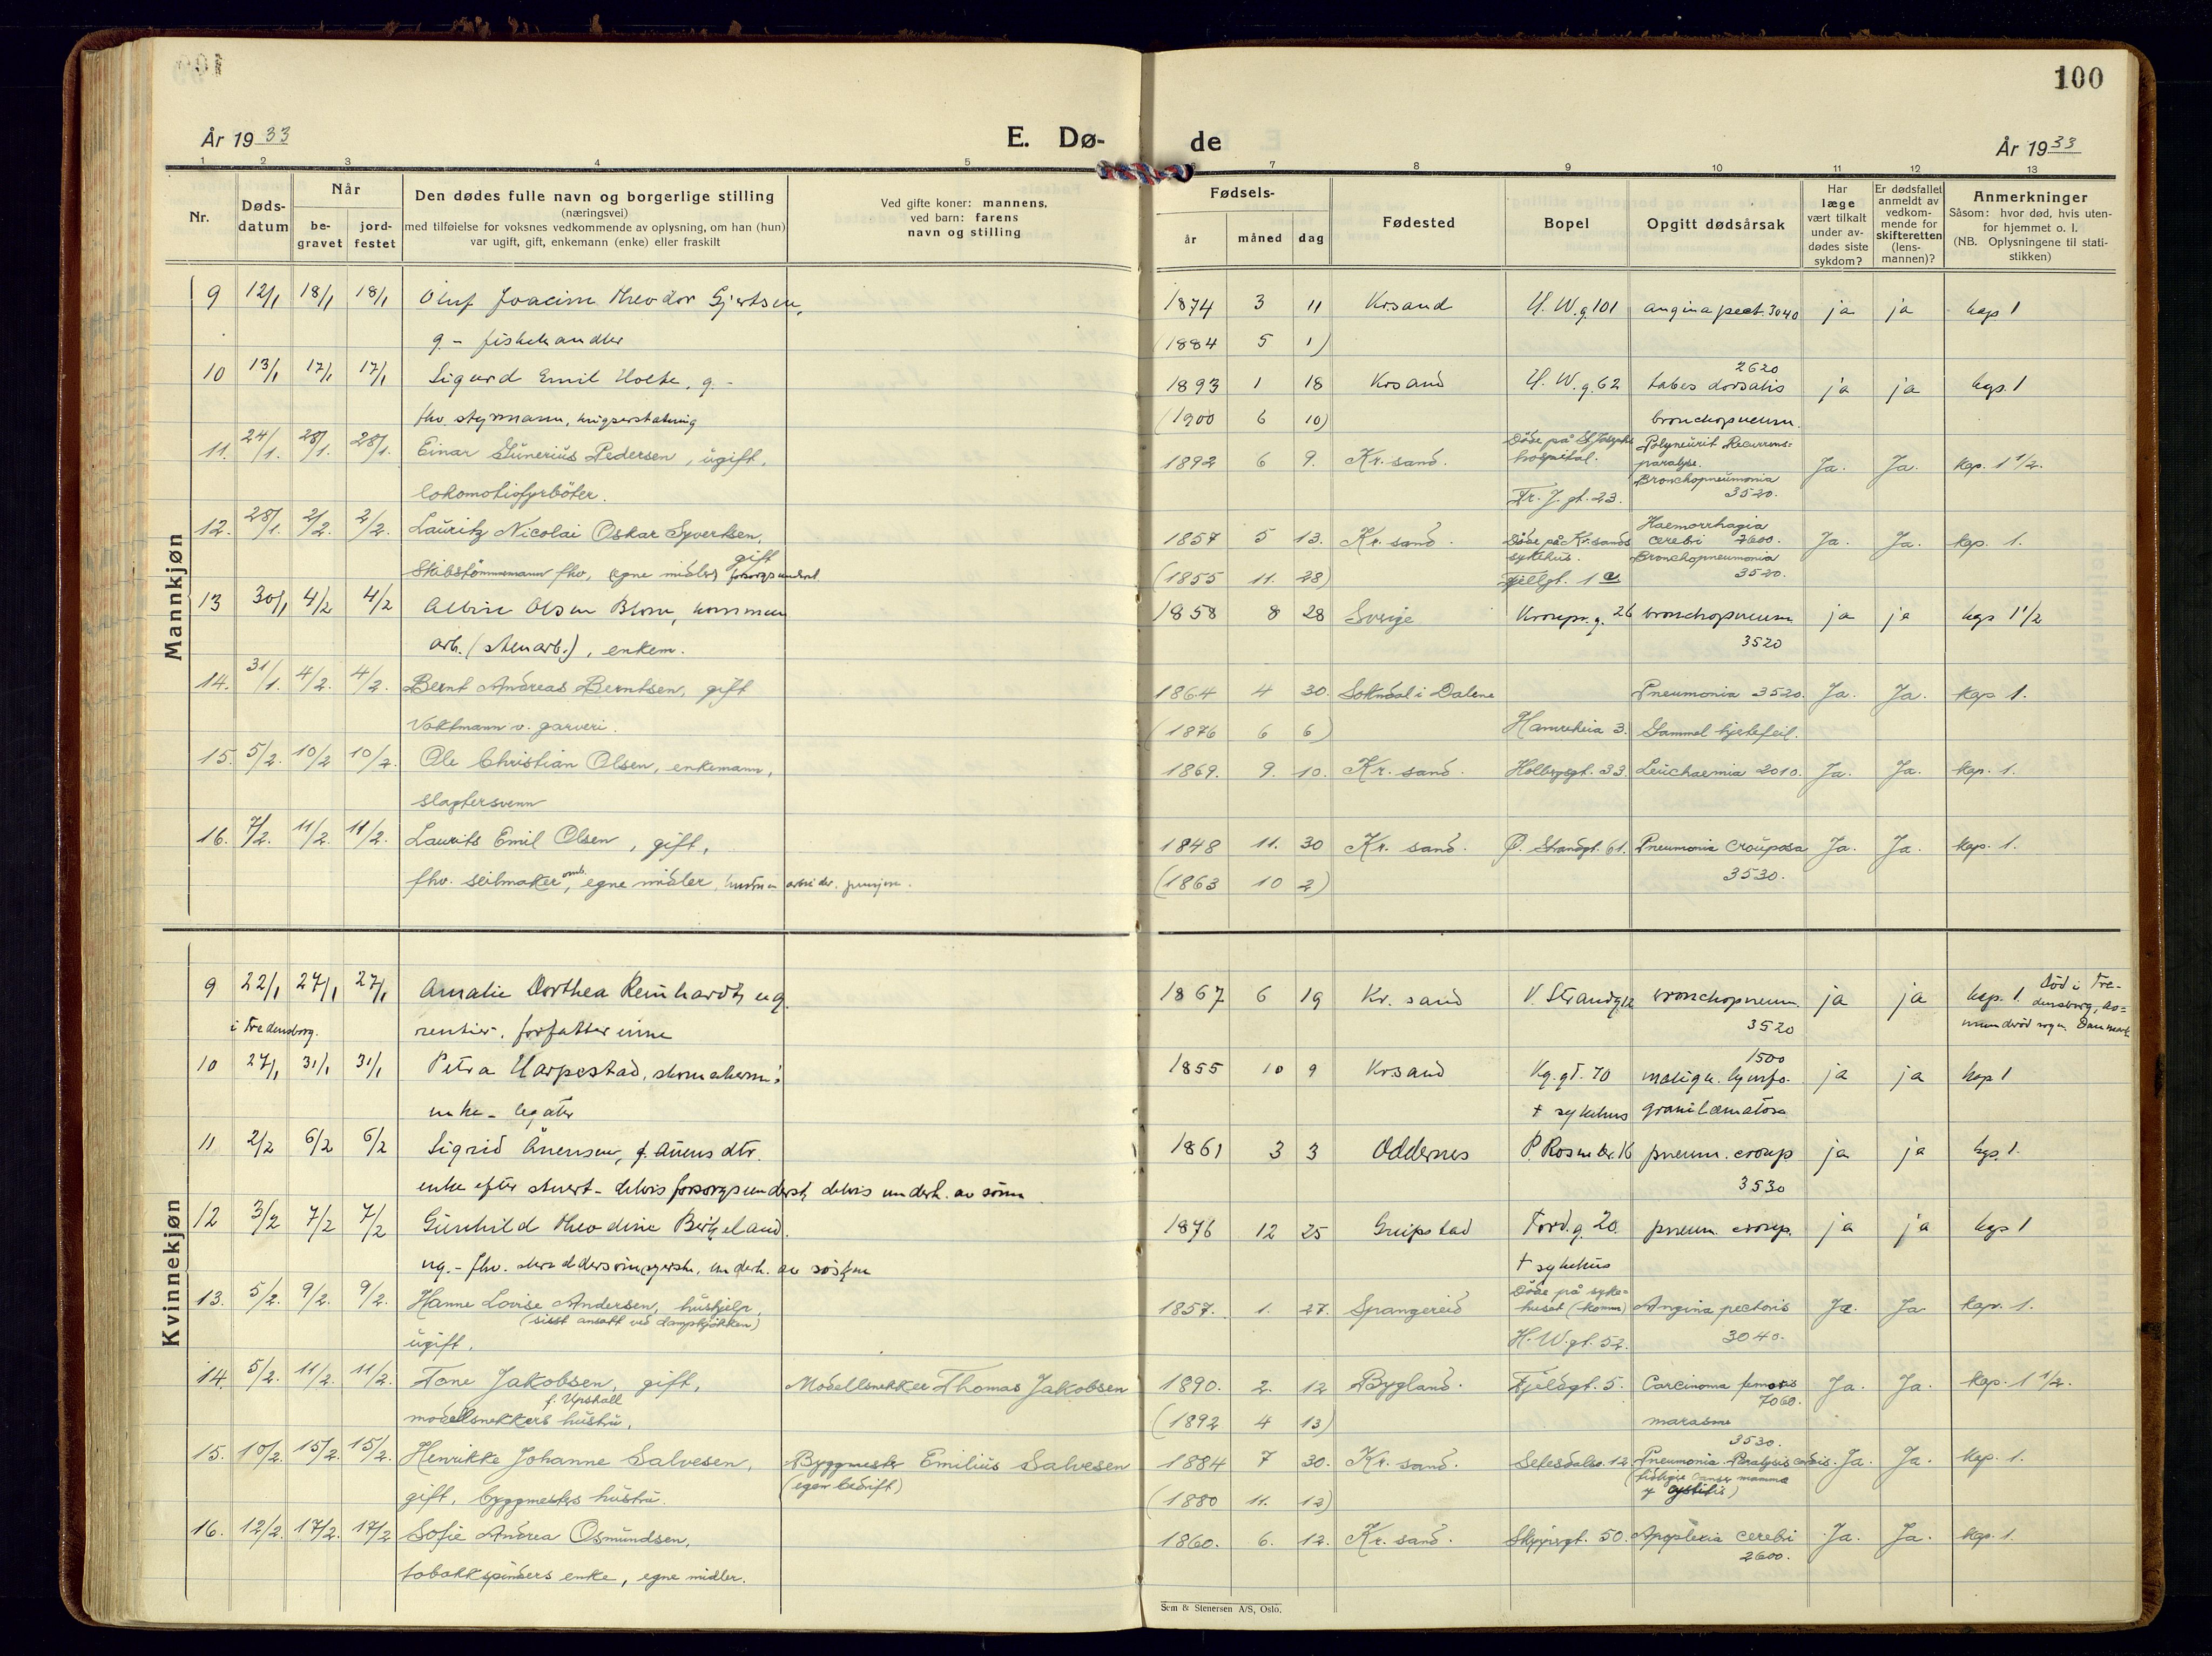 100
År 1933
E. Dø-
de
År 1933
1 2 3 4 5 6 7 8 9 10 11 12 13
Nr.
Døds-
datum
Når
be-
gravet
jord-
festet
Den dødes fulle navn og borgerlige stilling
(næringsvei)
med tilføielse for voksnes vedkommende av oplysning, om han (hun)
var ugift, gift, enkemann (enke) eller fraskilt
Ved gifte koner: mannens,
ved barn: farens
navn og stilling
Fødsels-
år måned dag
Fødested
Bopel
Opgitt dødsårsak
Har
læge
vært tilkalt
under av-
dødes siste
sykdom?
Er dødsfallet
anmeldt av
vedkom-
mende for
skifteretten
(lens-
mannen)?
Anmerkninger
Såsom: hvor død, hvis uten-
for hjemmet o. l.
(NB. Oplysningene til stati-
stikken)
Mannkjøn
9 12/1 18/1 18/1 Oluf Joacim Theodor Gjertsen, 1874 3 11 Krsand H. W. g. 101 angina pect. 3040 ja ja kap 1
g - fiskehandler (1884 5 1)
10 13/1 17/1 17/1 Sigurd Emil Holte, g. - 1893 1 18 Krsand H. W. g. 62 2620 tabes dorsalis ja ja kap. 1
fhv. styrmann, krigserstatning (1900 6 10) bronchopneum.
11. 24/1. 28/1. 28/1. Einar Sünerius Pedersen, ugift, 1892 6 9. Kr.sand. Döde på St Josephs hospital. Polyneurit Recurrens= paralyse. Ja. Ja. kap. 1 1/2.
lokomotivfyrböter. Fr. J. gt. 23. Bronchopneumonia 3520.
12. 28/1. 2/2. 2/2. Lauritz Nicolai Oskar Syvertsen, 1857 5 13. Kr. sand. Döde på Kr.sands sykehus. Haemorrhagia cerebi 2600. Ja. Ja. kap. 1.
gift
Skibstömmermann fhv, egne midler forsorgsunderst (1855 11. 28) Fjellgt. 1 a Bronchopneumonia 3520.
13 30/1 4/2 4/2 Albin Olsen Blom, kommun 1858 8 28 Sverige Kronpr. g. 26 bronchopneum ja ja kap 1 1/2
arb. (stenarb.), enkem. 3520
14. 31/1. 4/2. 4/2. Bernt Andreas Berntsen, gift 1864 4 30. Sokndal i Dalene Pneumonia 3520. Ja. Ja. kap 1.
Vaktmann v. garveri. (1876 6 6) Hamreheia 3. Gammel hjertefeil.
15. 5/2. 10/2 10/2. Ole Christian Olsen, enkemann, 1869. 9. 10. Kr. sand. Holbergsgt. 33. Leuchaemia 2010. Ja. Ja. kap. 1.
slagtersvenn
16. 7/2. 11/2. 11/2. Laurits Emil Olsen, gift, 1848 11. 30 Kr. sand. Ø. Strandgt. 61. Pneumonia croupøsa Ja. Ja. kap. 1.
fhv. seilmaker, egne midler, hustruen arbeider. (1863 10 2) 3530.
Kvinnekjøn
9 22/1 27/1 27/1 Amalie Dorthea Reinhardt, ug. 1867 6 19 Kr. sand V. Strandg. 12 bronchopneum. ja ja kap. 1. Död i Fre-
i Fredensborg. rentier, forfatterinne 3520 densborg, As=
munderöd sogn. Danmark
10 27/1 31/1 31/1 Petra Harpestad, skomakerm: 1855 10 9 Krsand Kg. gt. 70 1500 malign. lymfo- ja ja kap 1
enke - legater + sykehus granulomatose
11 2/2 6/2 6/2 Sigrid Ånensen, f. Ånensdtr. 1861 3 3 Oddernes P. Rosenkr. 16 pneum. croup ja ja kap. 1.
enke efter stuert - delvis forsorgsunderst, delvis underh. av sönn 3530
12 3/2 7/2 7/2 Gunhild Theodine Beitzeland. 1876 12 25 Greipstad Tord. g. 20. pneum. croup. ja ja kap 1
ug. - fhv. skreddersömmerske, underh. av søsken + sykehus
13. 5/2. 9/2. 9/2. Hanne Lovise Andersen, hüshjelp, 1857. 1. 27. Spangereid Döde på syke= huset (komm) Angina pectoris Ja. Ja kap. 1.
(sist ansatt ved dampkjökken)
ugift. H. W. gt. 52. 3040.
14. 5/2. 11/2. 11/2. Tone Jakobsen, gift, Modellsnekker Thomas Jakobsen 1890. 2. 12 Bygland. Fjeldgt. 5. Carcinoma femoris 7060. Ja. Ja. kap. 1 1/2.
f. Upstall
modellsnekkers hüstru, (1892 4 13) marasme
15. 10/2. 15/2. 15/2. Henrikke Johanne Salvesen, Byggmester Emilius Salvesen 1884 7 30. Kr. sand. Setesdalsv. 12 3530. Pneumonia. Paralysis cordis. Ja. Ja. kap. 1.
gift, byggmesters hüstru. (egen bedrift) (1880 11. 12) (tidligere Cancer mamma y cystitis)
16. 12/2. 17/2. 17/2 Sofie Andrea Osmundsen, 1860. 6. 12. Kr. sand. Skippergt. 50. Apoplexia cerebi Ja. Ja. kap. 1.
tobakkspinders enke, egne midler. 2600.
Sem & Stenersen A/S, Oslo.